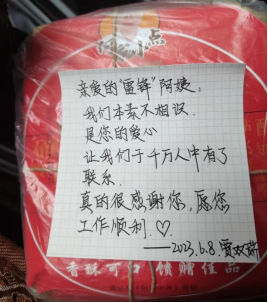 点
亲爱的“雷锋”阿姨：
我们本素不相识
是您的爱心
让我们于千万人中有了
联系.
真的很感谢您，愿您
工作顺利.♡
——2023.6.8.贾双龄
香酥可口 馈赠佳品